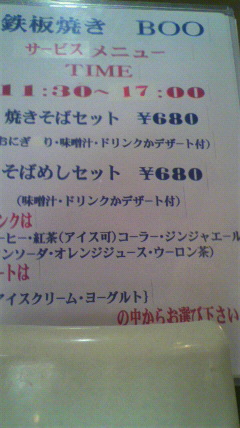 鉄板焼き BOO
サービス メニュー
TIME
11:30~17:00
焼きそばセット ¥680
おにぎ り・味噌汁・ドリンクかデザート付)
そばめしセット ¥680
(味噌汁・ドリンクかデザート付)
ンクは
ーヒー・紅茶(アイス可)コーラー・ジンジャエール
ンソーダ・オレンジジュース・ウーロン茶)
ートは
アイスクリーム・ヨーグルト}
の中からお選び下さい